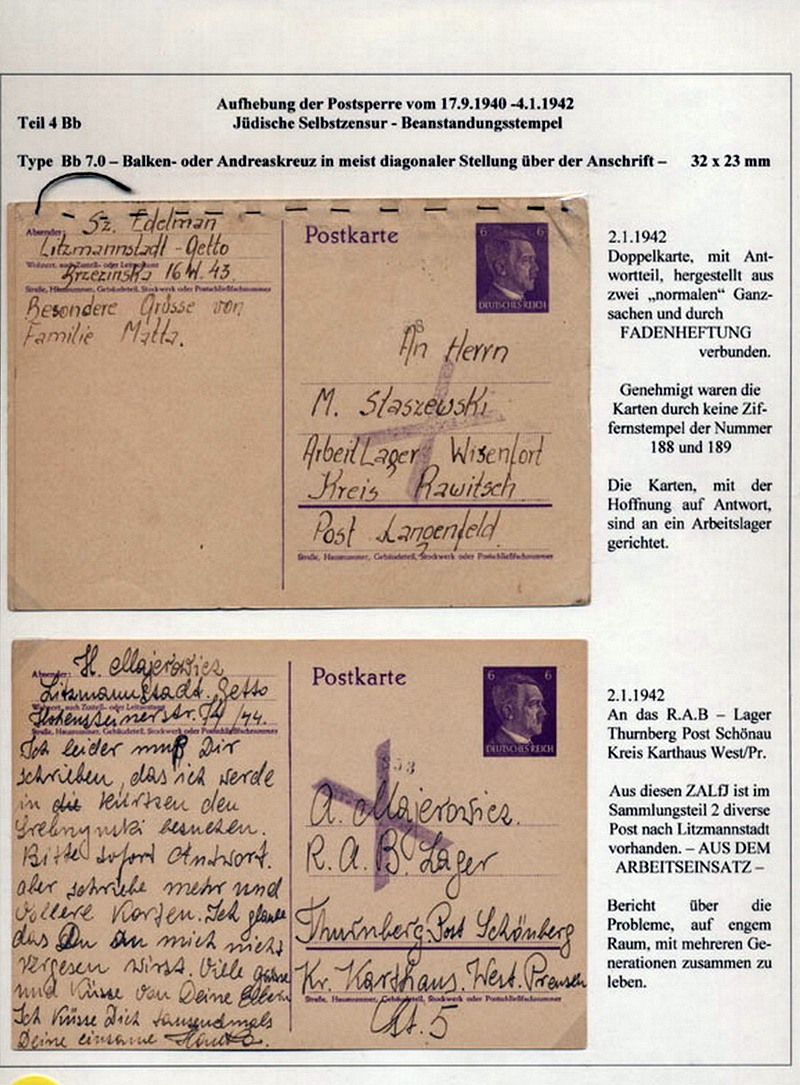 Aufhebung der Postsperre vom 17.9.1940 -4.1.1942
Teil 4 Bb
Jüdische Selbstzensur - Beanstandungsstempel
Type Bb 7.0 – Balken- oder Andreaskreuz in meist diagonaler Stellung über der Anschrift – 32 x 23 mm
Absender: Sz. Edelman
Litzmannstadt - Getto
Wohnort, auch Zustell- oder Leitpostamt
Brzezinska 16 W. 43.
Straße, Hausnummer, Gebäudeteil, Stockwerk oder Postschließfachnummer
Besondere Grüsse von
Familie Matta.
Postkarte
6 6
DEUTSCHES REICH
An Herrn
M. Staszewski
Arbeit Lager Wisenfort
Kreis Rawitsch
Post Langenfeld
Straße, Hausnummer, Gebäudeteil, Stockwerk oder Postschließfachnummer
2.1.1942
Doppelkarte, mit Ant-
wortteil, hergestellt aus
zwei „normalen“ Ganz-
sachen und durch
FADENHEFTUNG
verbunden.
Genehmigt waren die
Karten durch keine Zif-
fernstempel der Nummer
188 und 189
Die Karten, mit der
Hoffnung auf Antwort,
sind an ein Arbeitslager
gerichtet.
Absender: H. Majerowicz
Litzmannstadt. Getto
Wohnort, auch Zustell- oder Leitpostamt
Hohensteinerstr. 74/44.
Straße, Hausnummer, Gebäudeteil, Stockwerk oder Postschließfachnummer
Ich leider muß Dir
schrieben, das ich werde
in die kürtzen den
besuchen.
Bitte sofort Antwort.
aber schriebe mehr und
vollere Karten. Ich glaube
das Du an mich nicht
vergesen wirst. Viele grüsse
und Küsse von Deine Eltern
Ich Küsse Dich tausendmals
Deine einsame
Postkarte
6 6
DEUTSCHES REICH
A. Majerowicz.
R. A. B. Lager
Thurnberg. Post Schönberg
Kr. Karthaus. West. Preusen
Straße, Hausnummer, Gebäudeteil, Stockwerk oder Postschließfachnummer
St. 5
2.1.1942
An das R.A.B – Lager
Thurnberg Post Schönau
Kreis Karthaus West/Pr.
Aus diesen ZALfJ ist im
Sammlungsteil 2 diverse
Post nach Litzmannstadt
vorhanden. – AUS DEM
ARBEITSEINSATZ –
Bericht über die
Probleme, auf engem
Raum, mit mehreren Ge-
nerationen zusammen zu
leben.